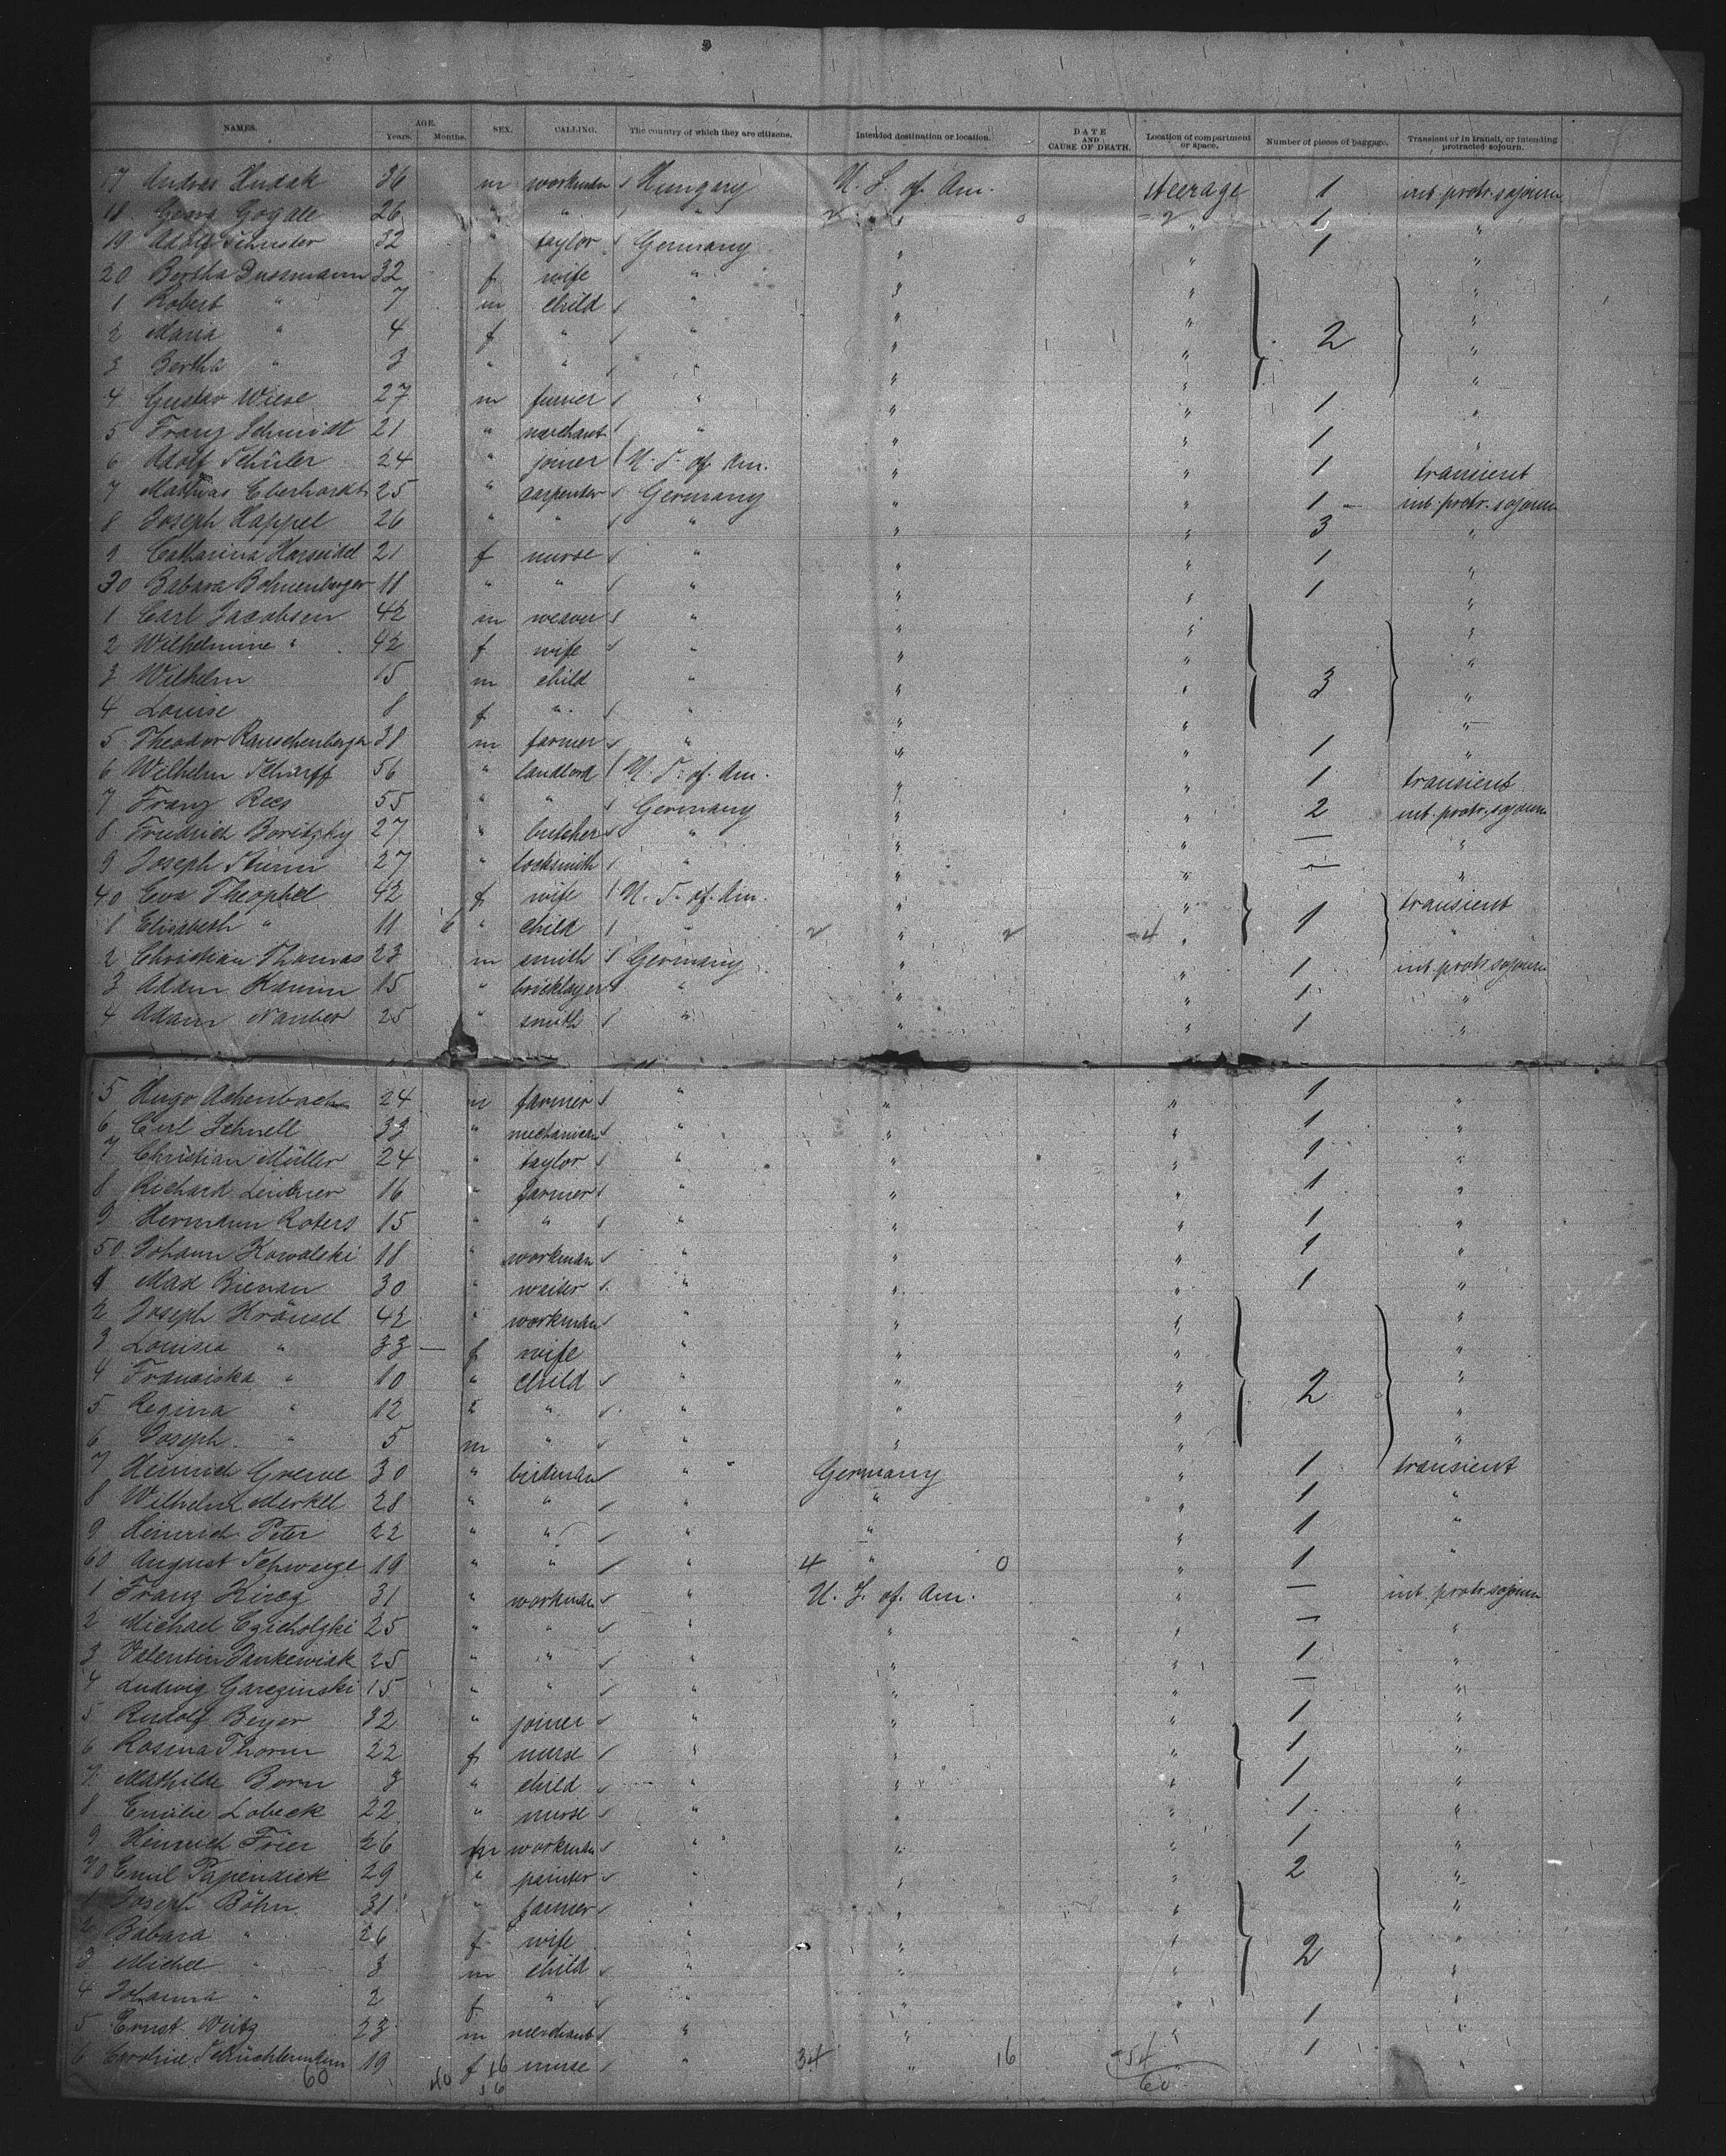 NAMES. AGE. Years. Months. SEX. CALLING. The country of which they are citizens. Intended destination or location. DATE AND CAUSE OF DEATH. Location of compartment or space. Number of pieces of baggage. Transient or in transit, or intending protracted sojourn.
17 Andras Hudak 36 m workman Hungary U. S. of Am. steerage 1 int. protr. sojourn
18 Georg Gogale 26 " " " " " 1 "
19 Adolf Schuster 32 " taylor Germany " " 1 "
20 Bertha Dussmann 32 f wife " " " "
1 Robert " 7 m child " " " "
2 Maria " 4 f " " " " 2 "
3 Bertha " 3 " " " " " "
4 Gustav Wiese 27 m furrier " " " 1 "
5 Franz Schmidt 21 " merchant " " " 1 "
6 Adolf Schüler 24 " joiner U. S. of Am. " " 1 transient
7 Mathias Eberhardt 25 " carpenter Germany " " 1 int. protr. sojourn
8 Joseph Happel 26 " " " " " 3 "
9 Catharina 21 f nurse " " " 1 "
30 Babara Bohnenberger 18 " " " " " 1 "
1 Carl Jacobsen 42 m weaver " " " "
2 Wilhelmine " 42 f wife " " " "
3 Wilhelm 15 m child " " " 3 "
4 Louise 8 f " " " " "
5 Theodor Rauschenberger 38 m farmer " " " 1 "
6 Wilhelm Scharff 56 " landlord U. S. of Am. " " 1 transient
7 Franz Rees 55 " " Germany " " 2 int. protr. sojourn
8 Friedrich Boritzky 27 " butcher " " " — "
9 Joseph Sturm 27 " locksmith " " " — "
40 Eva Theophel 42 f wife U. S. of Am. " " 1 transient
1 Elisabeth " 11 6 " child " " " "
2 Christian Thomas 23 m smith Germany " " 1 int. protr. sojourn
3 Adam Kamm 15 " bricklayer " " " 1 "
4 Adam Nauber 25 " smith " " " 1 "
5 Hugo Achenbach 24 m farmer " " " 1 "
6 Carl Schnell 33 " mechanican " " " 1 "
7 Christian Müller 24 " taylor " " " 1 "
8 Richard Leitner 16 " farmer " " " 1 "
9 Hermann Roters 15 " " " " " 1 "
50 Johann Kowalski 18 " workman " " " 1 "
1 Max Bienau 30 " waiter " " " 1 "
2 Joseph Kränsel 42 " workman " " " "
3 Louisa " 33 — f wife " " " "
4 Franziska " 10 " child " " " 2 "
5 Regina " 12 " " " " " "
6 Joseph " 5 m " " " " "
7 Heinrich Grewe 30 " birdman " Germany " 1 transient
8 Wilhelm Merkel 28 " " " " " 1 "
9 Heinrich Peter 22 " " " " " 1 "
60 August Schwarze 19 " " " 4 " 0 1 "
1 Franz Kircz 31 " workman " U. S. of Am. " — int. protr. sojourn
2 Michael Czicholzki 25 " " " " " — "
3 Valentin Jankewiak 25 " " " " " 1 "
4 Ludwig Garczinski 15 " " " " " — "
5 Rudolf Beyer 32 " joiner " " " 1 "
6 Rosina Thorm 22 f nurse " " " 1 "
7 Mathilde Born 3 " child " " " 1 "
8 Emilie Lobeck 22 " nurse " " " 1 "
9 Heinrich Frier 26 m workman " " " 1 "
70 Emil Papendick 29 " painter " " " 2 "
1 Joseph Böhn 31 " farmer " " " "
2 Babara " 26 f wife " " " 2 "
3 Michel " 3 m child " " " "
4 Johanna " 2 f " " " " "
5 Ernst Weitz 23 m merchant " " " 1 "
6 Caroline 19 f nurse " 34 " 16 54 1 "
60 40 16 60